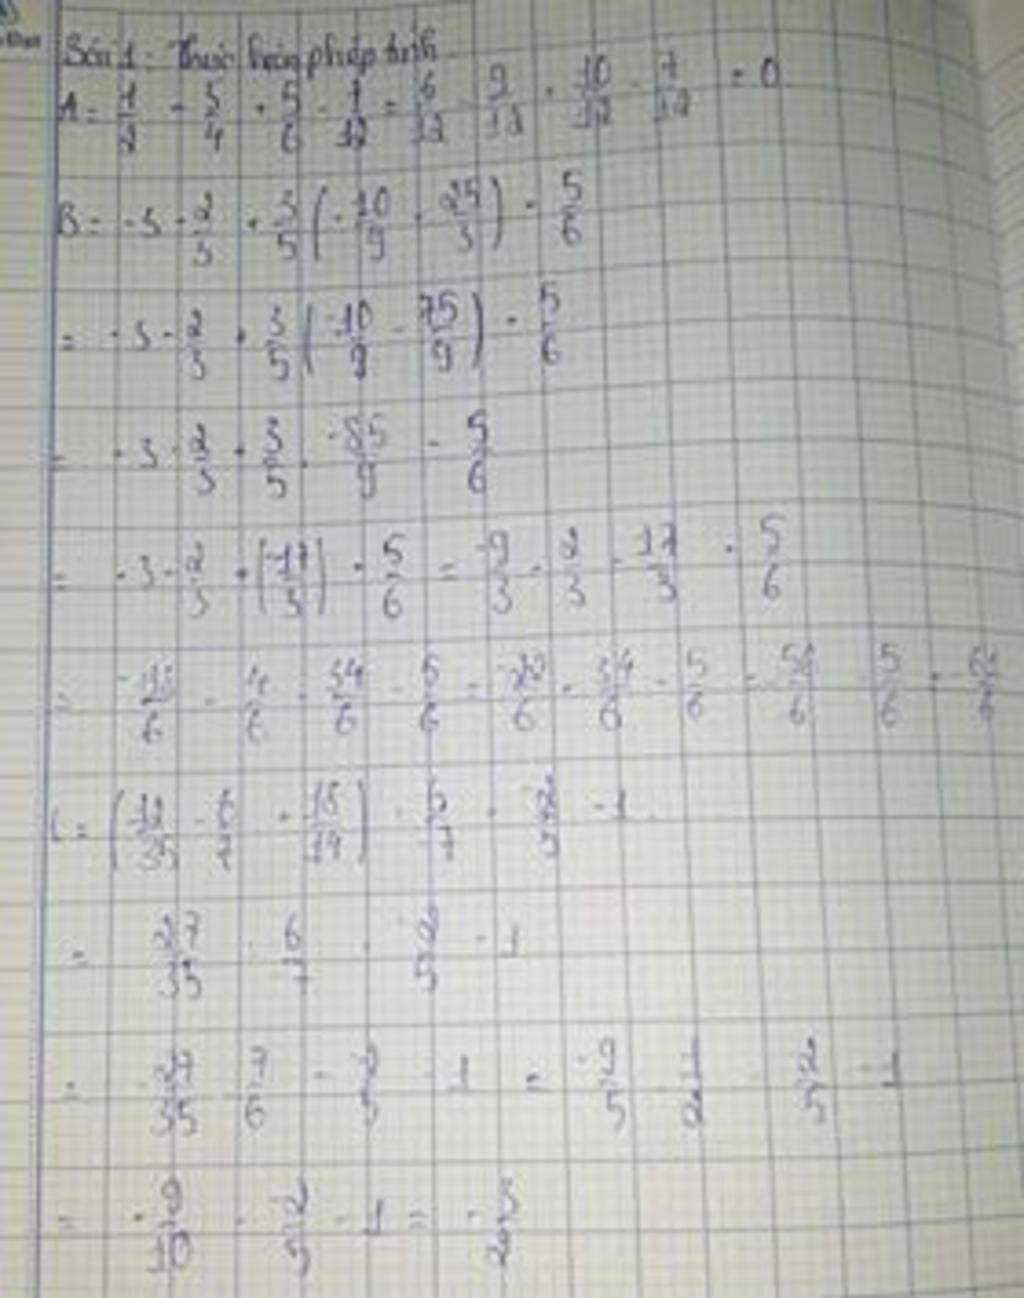 Bài 1: Thực hiện phép tính
A = 1/2 - 3/4 + 5/6 - 7/12 = 6/12 - 9/12 + 10/12 - 7/12 = 0
B = -3 - 2/3 + 3/5 (-10/9 - 25/3) - 5/6
= -3 - 2/3 + 3/5 (-10/9 - 75/9) - 5/6
= -3 - 2/3 + 3/5 . -85/9 - 5/6
= -3 - 2/3 + (-17/3) - 5/6 = -9/3 - 2/3 - 17/3 - 5/6
= - 4/6 - 34/6 - 5/6 = -22/6 - 34/6 - 5/6 = 5/6
- 6/7 - 1
= 27/35 6/7 2/5 - 1
= 27/35 7/6 - 2/5 - 1 = -9/5 1/2 - 2/5 - 1
= -9/10 - 2/5 - 1 = -3/2